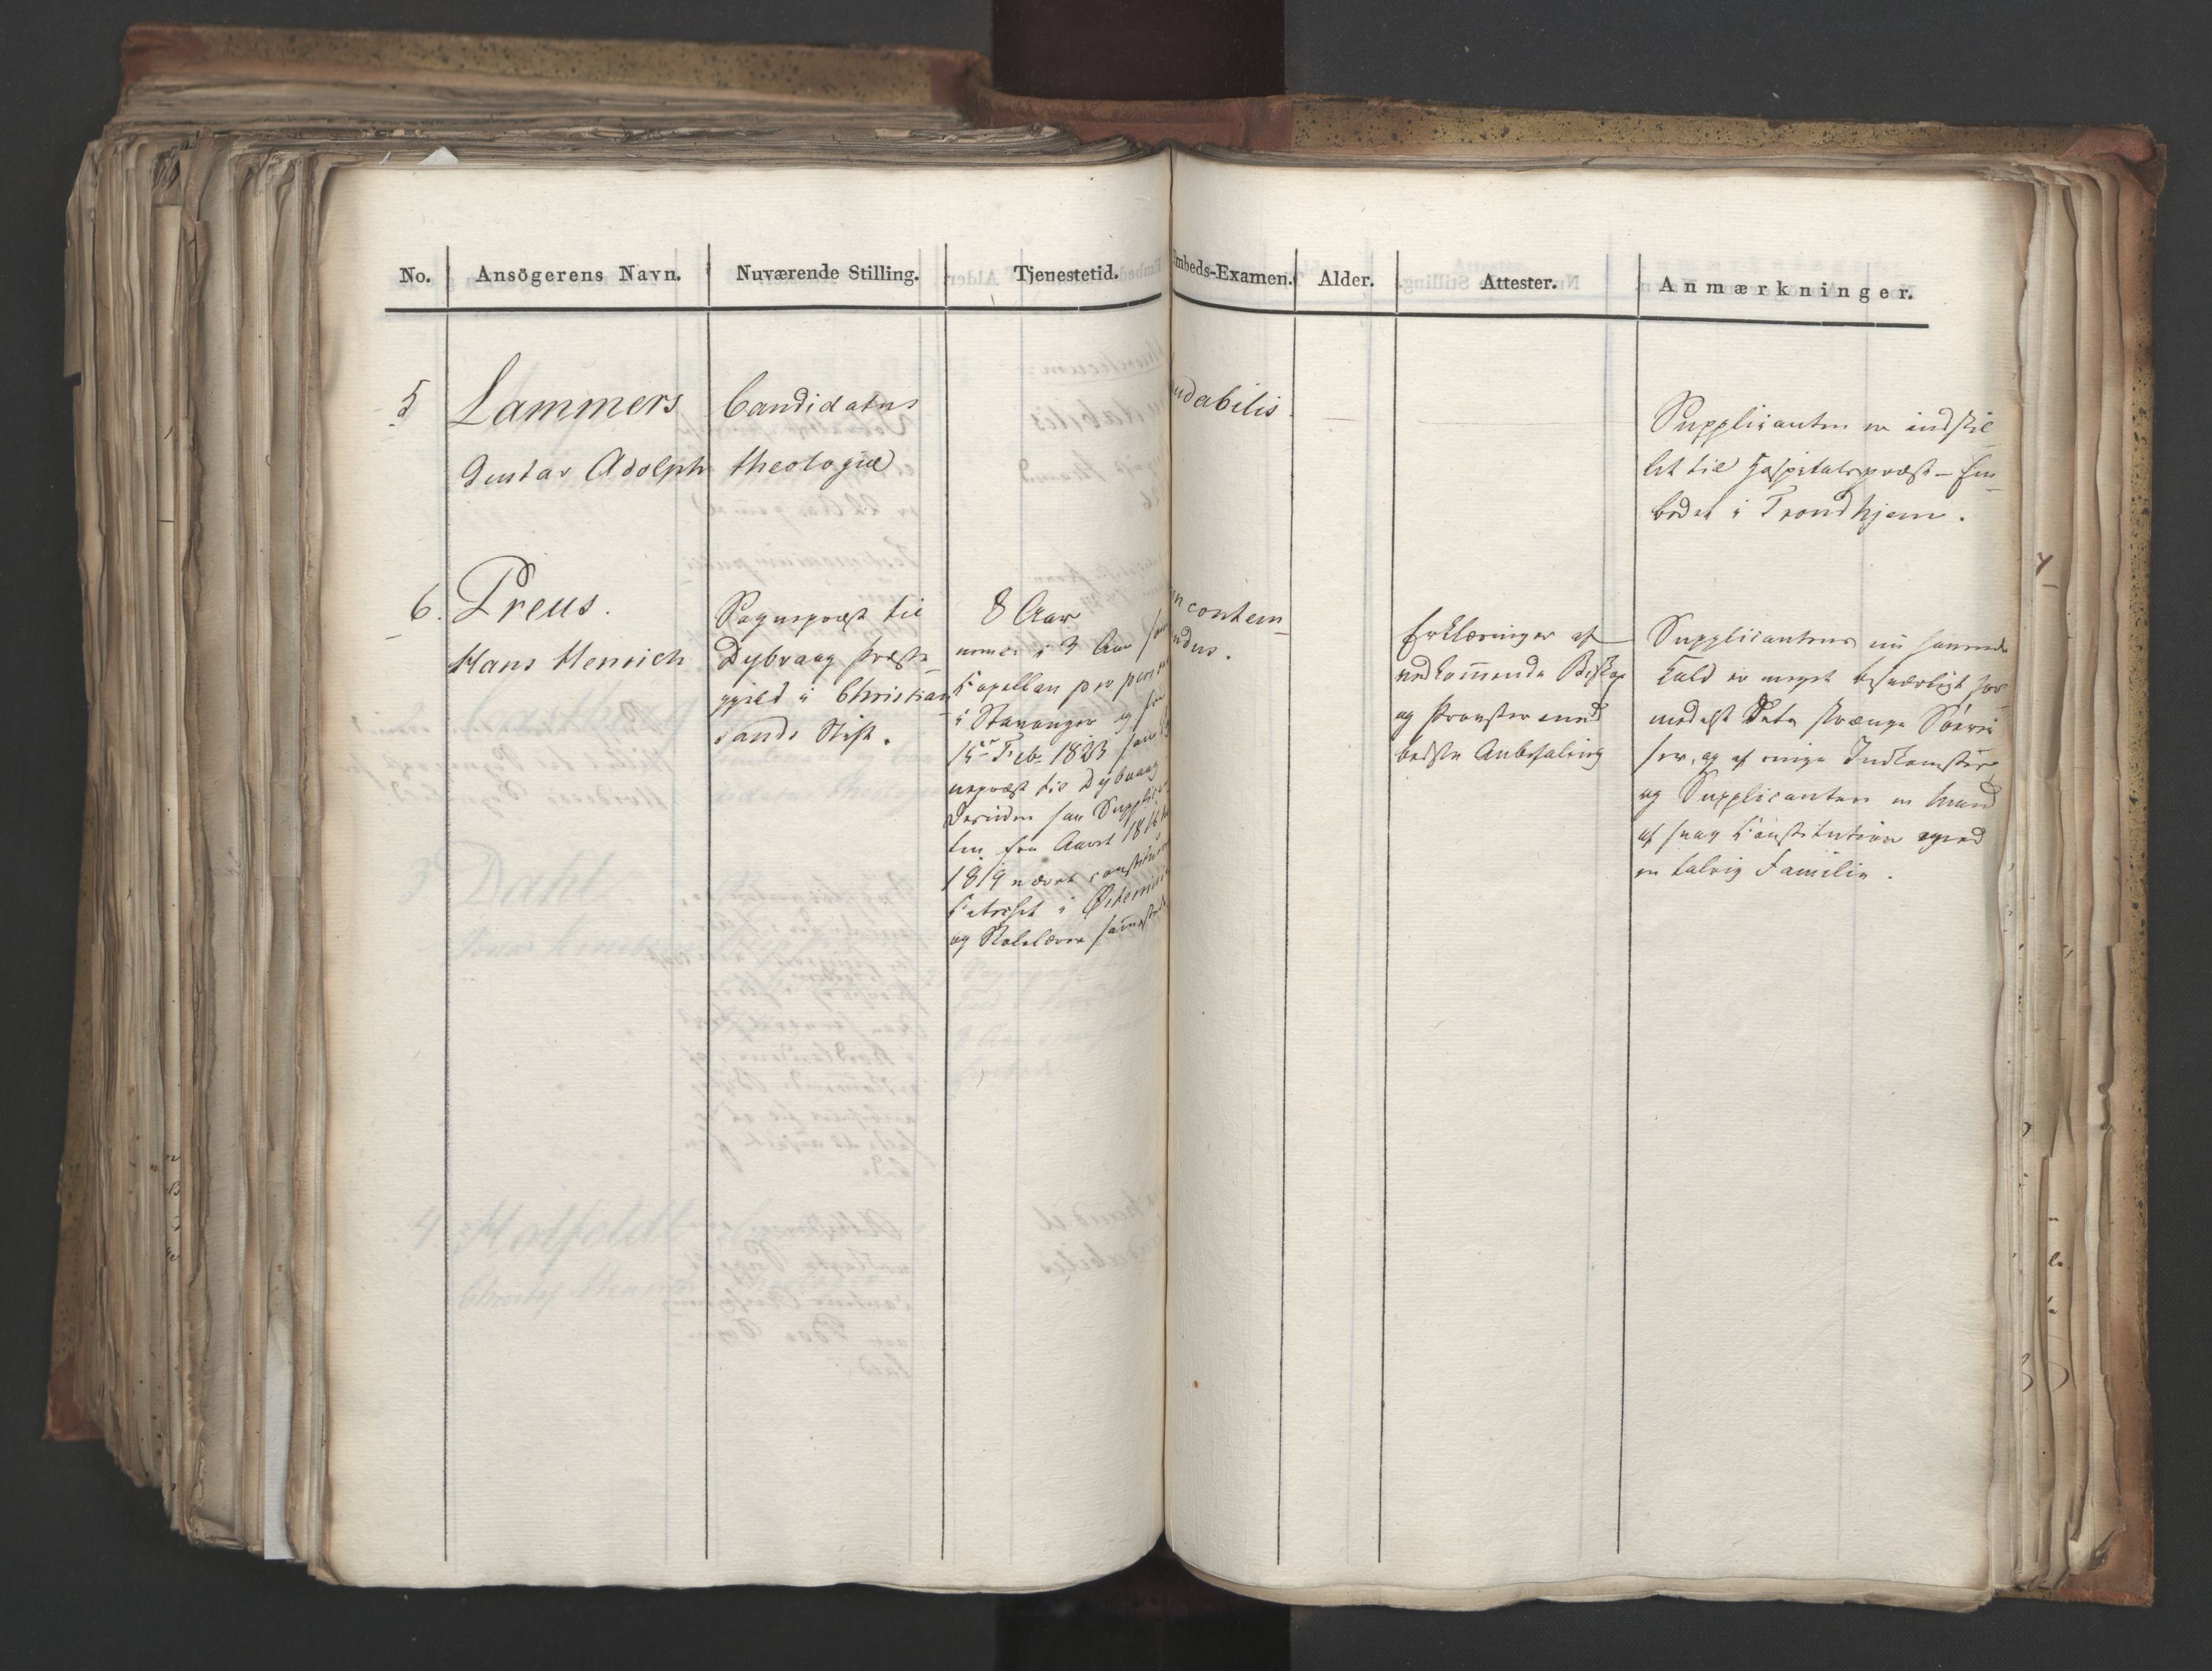 No. Ansögerens Navn. Nuværende Stilling. Tjenestetid. Embeds-Examen. Alder. Attester. Anmærkninger.
5
Lammers
Gustav Adolph
Candidatus
theologiæ
udabilis
Supplicanten er indstil-
let til Hospitalspræst-Em-
bedet i Trondhjem.
6.
Preus.
Hans Henrich
Sognepræst til
Dybvaag Præste-
gjeld i Christian-
sands Stift.
8 Aar
nemlig i 3 Aar som
Capellan pro pers
i Stavanger og fra
15de Feb. 1823 som
nepræst til Dybvaag
Desuden har Supplican
ten fra Aaret 1816 til
1819 været constitue
Catechet i Østerriis
og Skolelærer sammested
n contem-
ndus.
Erklæringer af
vedkommende Biskop
og Provster med
bedste Anbefaling
Supplicantens nu havende
Kald er meget besværligt for-
medelst Dets strænge Søerei-
ser, og af ringe Indkomster,
og Supplicanten en Mand
af svag Constitution med
en talrig Familie.